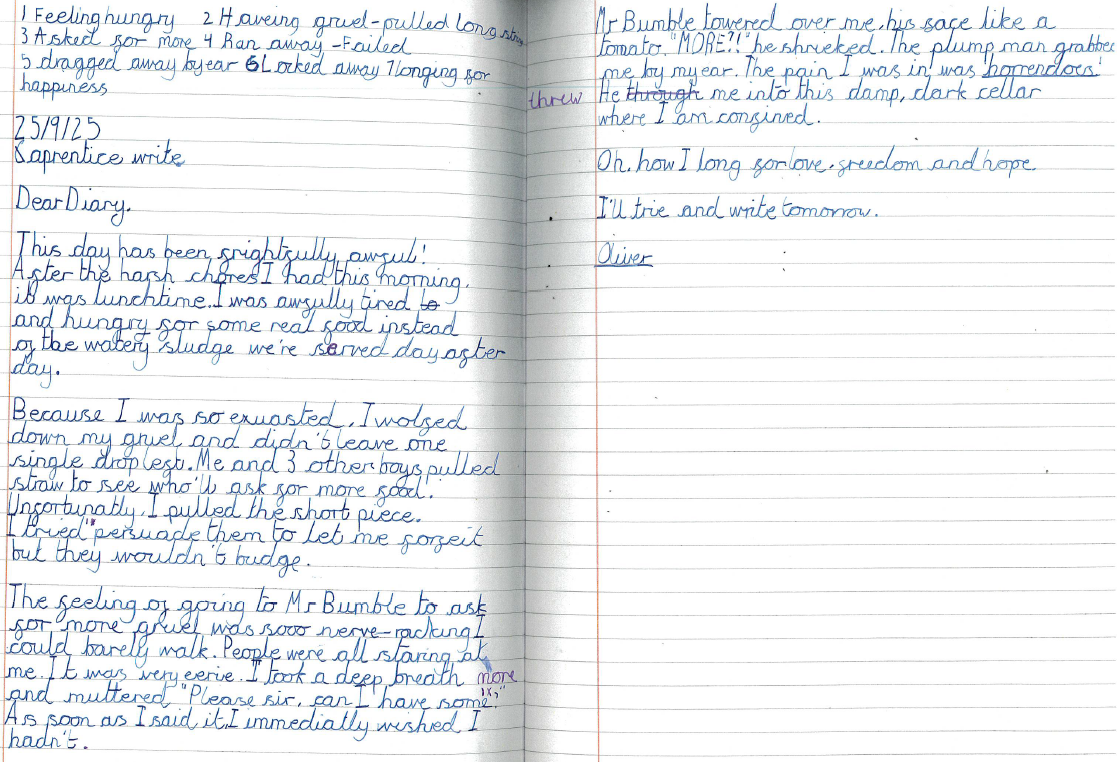 1 Feeling hungry 2 Haveing gruel-pulled long straw
3 Asked for more 4 Ran away -Failed
5 dragged away by ear 6 Locked away 7 longing for
happiness
25/9/25
L aprentice write
Dear Diary,
This day has been frightfully awful!
After the harsh chores I had this morning,
it was lunchtime. I was awfully tired to
and hungry for some real food instead
of the watery sludge we're served day after
day.
Because I was so exuasted, I wolfed
down my gruel and didn't leave one
single drop left. Me and 3 other boys pulled
straw to see who'll ask for more food.
Unfortunatly, I pulled the short piece.
I tried persuade them to let me forfeit
but they wouldn't budge.
The feeling of going to Mr Bumble to ask
for more gruel was sooo nerve-racking I
could barely walk. People were all staring at
me. It was very eerie. I took a deep breath
and muttered "Please sir, can I have some more?"
As soon as I said it, I immediatly wished I
hadn't.
Mr Bumble towered over me, his face like a
tomato. "MORE?!" he shrieked. The plump man grabbed
me by my ear. The pain I was in was horrendoes!
He through threw me into this damp, dark cellar
where I am confined.
Oh, how I long for love, freedom and hope.
I'll trie and write tomorrow.
Oliver